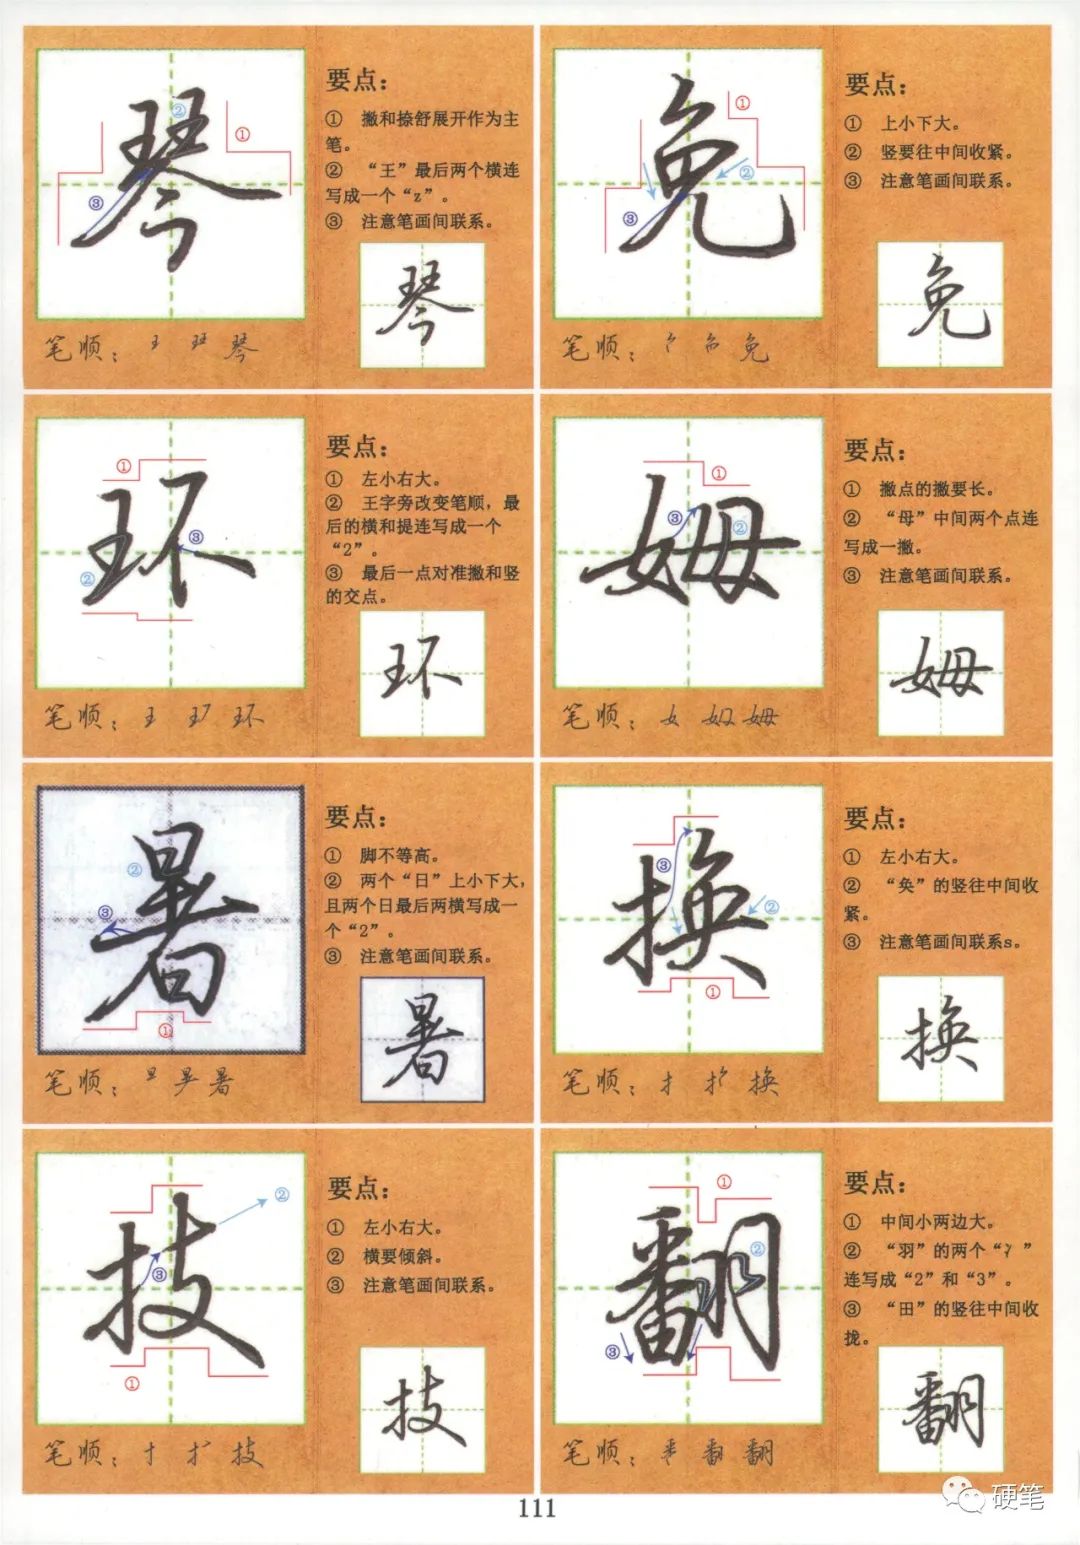 琴
①
②
③
要点：
① 撇和捺舒展开作为主
笔。
② “王”最后两个横连
写成一个“z”。
③ 注意笔画间联系。
琴
笔顺：王 玨 琴
免
①
②
③
要点：
① 上小下大。
② 竖要往中间收紧。
③ 注意笔画间联系。
免
笔顺：免
环
①
②
③
要点：
① 左小右大。
② 王字旁改变笔顺，最
后的横和提连写成一个
“2”。
③ 最后一点对准撇和竖
的交点。
环
笔顺：王 环
姆
①
②
③
要点：
① 撇点的撇要长。
② “母”中间两个点连
写成一撇。
③ 注意笔画间联系。
姆
笔顺：女 姆
暑
①
②
③
要点：
① 脚不等高。
② 两个“日”上小下大，
且两个日最后两横写成一
个“2”。
③ 注意笔画间联系。
暑
笔顺：日 暑
换
①
②
③
①
要点：
① 左小右大。
② “奂”的竖往中间收
紧。
③ 注意笔画间联系s。
换
笔顺：扌 换
技
①
②
③
要点：
① 左小右大。
② 横要倾斜。
③ 注意笔画间联系。
技
笔顺：扌 技
翻
①
②
③
要点：
① 中间小两边大。
② “羽”的两个“冫”
连写成“2”和“3”。
③ “田”的竖往中间收
拢。
翻
笔顺：番 翻
111
硬笔